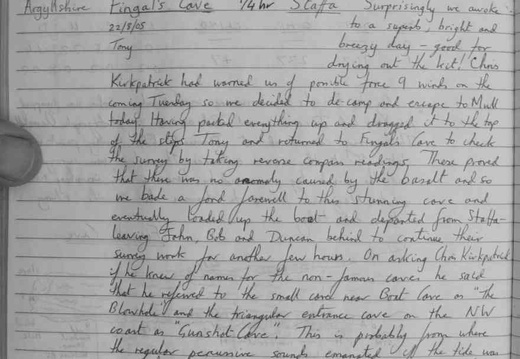 Argyllshire Fingal's Cave 1/4 hr Staffa Surprisingly we awoke
22/8/05 to a superb, bright and
Tony breezy day - good for
drying out the kit! Chris
Kirkpatrick had warned us of possible force 9 winds on the
coming Tuesday so we decided to de-camp and escape to Mull
today. Having packed everything up and dragged it to the top
of the steps Tony and returned to Fingal's Cave to check
the survey by taking reverse compass readings. These proved
that there was no anomaly caused by the basalt and so
we bade a fond farewell to this stunning cave and
eventually loaded up the boat and departed from Staffa-
leaving John, Bob and Duncan behind to continue their
survey work for another few hours. On asking Chris Kirkpatrick
if he knew of names for the non-famous caves he said
that he referred to the small cave near Boat Cave as "the
Blowhole" and the triangular entrance cave on the NW
coast as "Gunshot Cave". This is probably from where
the regular percussive sounds emanated the tide was